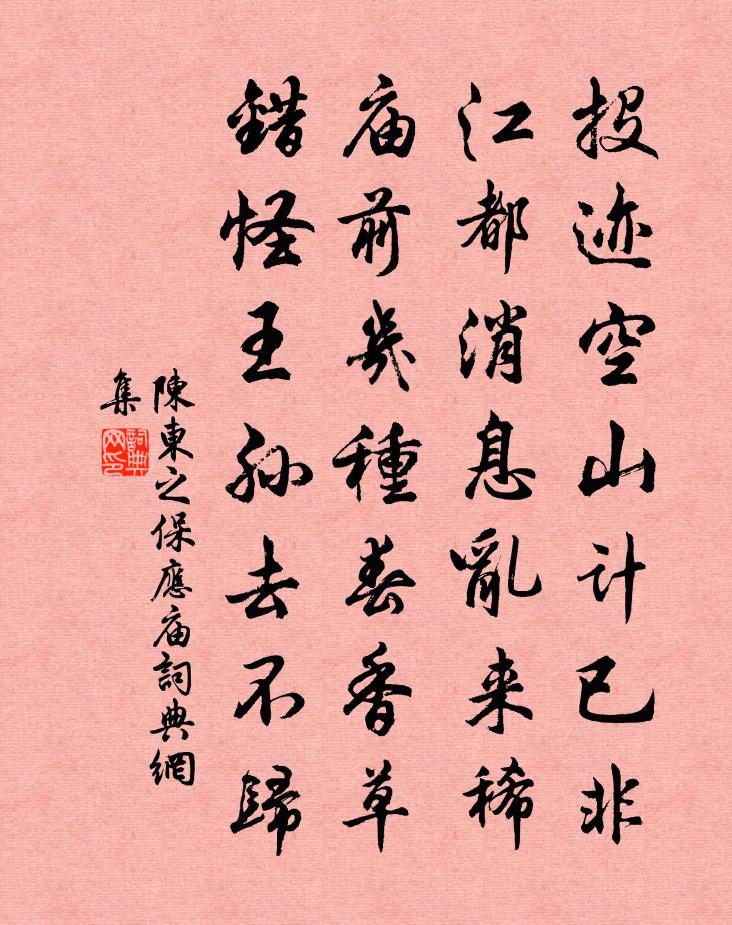 投迹空山计已非
江都消息亂来稀
庙前幾種春香草
錯怪王孙去不歸
陳東之保應庙詞典網
集
詞典
网印